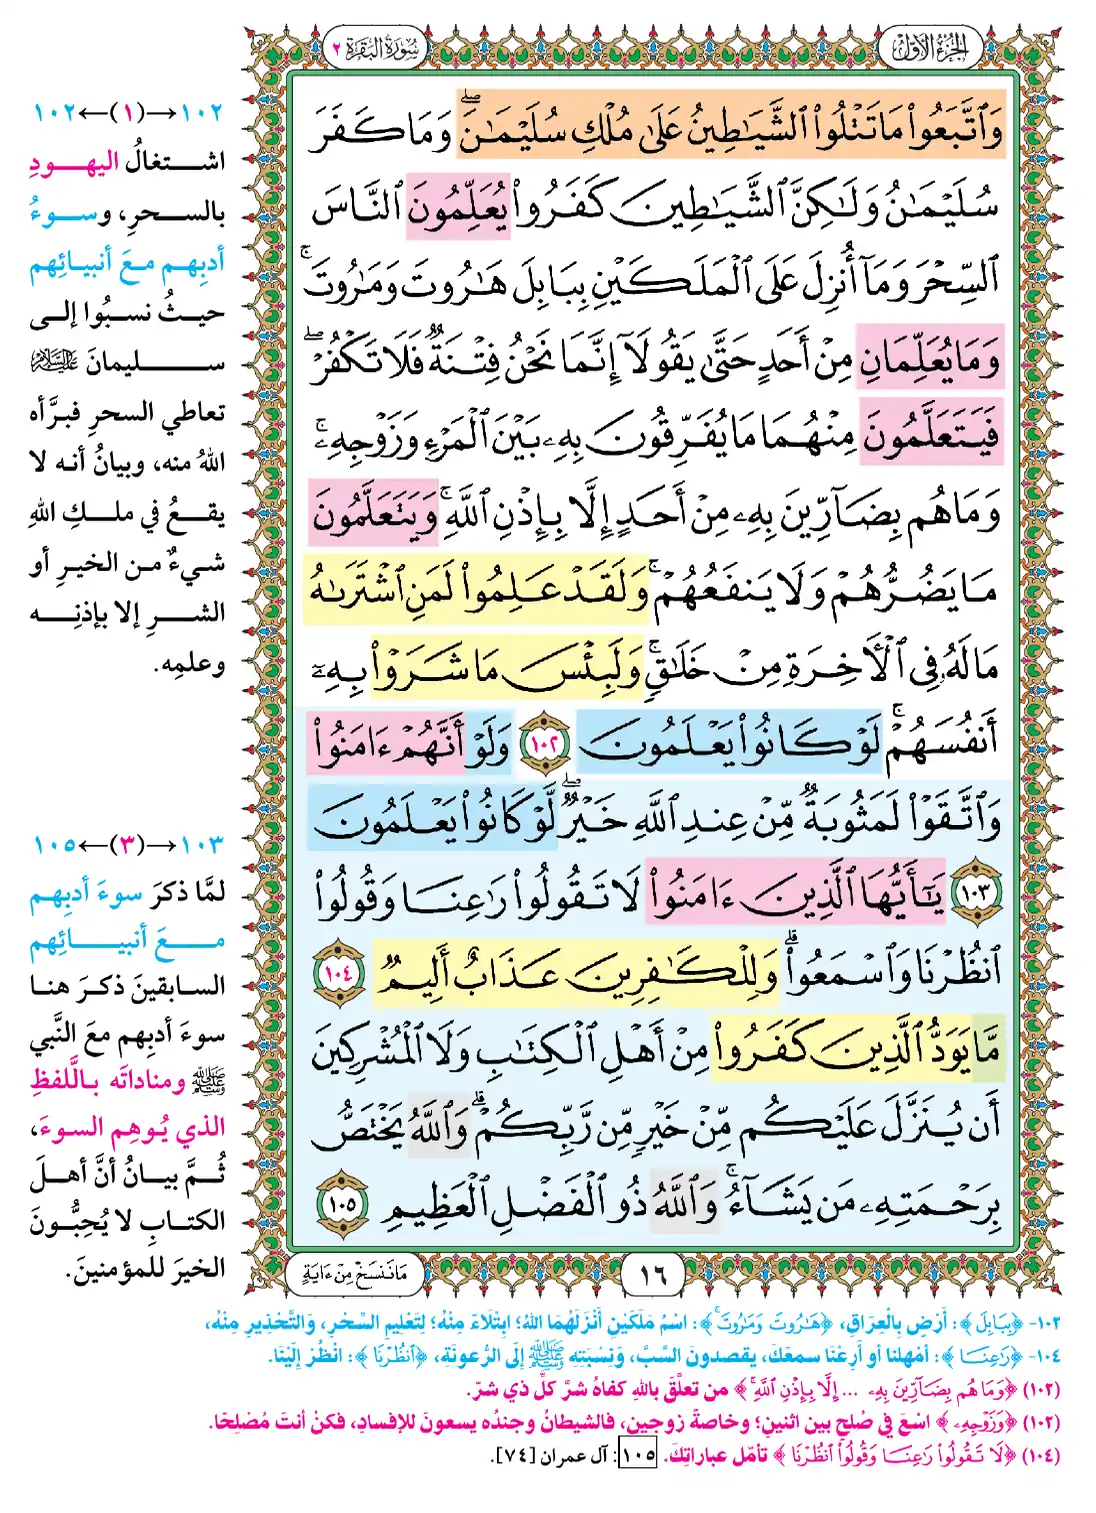 الجزء الأول
سورة البقرة ٢
وَٱتَّبَعُوا۟ مَا تَتْلُوا۟ ٱلشَّيَـٰطِينُ عَلَىٰ مُلْكِ سُلَيْمَـٰنَ ۖ وَمَا كَفَرَ
سُلَيْمَـٰنُ وَلَـٰكِنَّ ٱلشَّيَـٰطِينَ كَفَرُوا۟ يُعَلِّمُونَ ٱلنَّاسَ
ٱلسِّحْرَ وَمَآ أُنزِلَ عَلَى ٱلْمَلَكَيْنِ بِبَابِلَ هَـٰرُوتَ وَمَـٰرُوتَ ۚ
وَمَا يُعَلِّمَانِ مِنْ أَحَدٍ حَتَّىٰ يَقُولَآ إِنَّمَا نَحْنُ فِتْنَةٌ فَلَا تَكْفُرْ ۖ
فَيَتَعَلَّمُونَ مِنْهُمَا مَا يُفَرِّقُونَ بِهِۦ بَيْنَ ٱلْمَرْءِ وَزَوْجِهِۦ ۚ
وَمَا هُم بِضَآرِّينَ بِهِۦ مِنْ أَحَدٍ إِلَّا بِإِذْنِ ٱللَّهِ ۚ وَيَتَعَلَّمُونَ
مَا يَضُرُّهُمْ وَلَا يَنفَعُهُمْ ۚ وَلَقَدْ عَلِمُوا۟ لَمَنِ ٱشْتَرَىٰهُ
مَا لَهُۥ فِى ٱلْـَٔاخِرَةِ مِنْ خَلَـٰقٍ ۚ وَلَبِئْسَ مَا شَرَوْا۟ بِهِۦٓ
أَنفُسَهُمْ ۚ لَوْ كَانُوا۟ يَعْلَمُونَ ١٠٢ وَلَوْ أَنَّهُمْ ءَامَنُوا۟
وَٱتَّقَوْا۟ لَمَثُوبَةٌ مِّنْ عِندِ ٱللَّهِ خَيْرٌ ۖ لَّوْ كَانُوا۟ يَعْلَمُونَ
١٠٣ يَـٰٓأَيُّهَا ٱلَّذِينَ ءَامَنُوا۟ لَا تَقُولُوا۟ رَٰعِنَا وَقُولُوا۟
ٱنظُرْنَا وَٱسْمَعُوا۟ ۗ وَلِلْكَـٰفِرِينَ عَذَابٌ أَلِيمٌ ١٠٤
مَّا يَوَدُّ ٱلَّذِينَ كَفَرُوا۟ مِنْ أَهْلِ ٱلْكِتَـٰبِ وَلَا ٱلْمُشْرِكِينَ
أَن يُنَزَّلَ عَلَيْكُم مِّنْ خَيْرٍ مِّن رَّبِّكُمْ ۗ وَٱللَّهُ يَخْتَصُّ
بِرَحْمَتِهِۦ مَن يَشَآءُ ۚ وَٱللَّهُ ذُو ٱلْفَضْلِ ٱلْعَظِيمِ ١٠٥
١٦
مَا نَنسَخْ مِنْ ءَايَةٍ
١٠٢→(١)←١٠٢
اشتغالُ اليهودِ
بالسحرِ، وسوءُ
أدبِهم معَ أنبيائِهم
حيثُ نسبُوا إلى
سليمانَ عليه السلام
تعاطي السحرِ فبرَّأه
اللهُ منه، وبيانُ أنه لا
يقعُ في ملكِ اللهِ
شيءٌ من الخيرِ أو
الشرِ إلا بإذنِه
وعلمِه.
١٠٣→(٣)←١٠٥
لمَّا ذكرَ سوءَ أدبِهم
معَ أنبيائِهم
السابقينَ ذكرَ هنا
سوءَ أدبِهم معَ النَّبي
ﷺ ومناداتَه باللَّفظِ
الذي يُوهِم السوءَ،
ثُمَّ بيانُ أنَّ أهلَ
الكتابِ لا يُحِبُّونَ
الخيرَ للمؤمنينَ.
١٠٢- ﴿بِبَابِلَ﴾: أَرْضٍ بِالْعِرَاقِ، ﴿هَـٰرُوتَ وَمَـٰرُوتَ ۚ﴾: اسْمُ مَلَكَيْنِ أَنْزَلَهُمَا اللهُ؛ ابْتِلَاءً مِنْهُ؛ لِتَعْلِيمِ السِّحْرِ، وَالتَّحْذِيرِ مِنْهُ،
١٠٤- ﴿رَٰعِنَا﴾: أمْهِلنا أو أَرِعْنَا سمعَكَ، يقصدونَ السَّبَّ، وَنِسْبَتِهِ ﷺ إلَى الرُّعونَةِ، ﴿ٱنظُرْنَا﴾: انْظُرْ إِلَيْنَا.
(١٠٢) ﴿وَمَا هُم بِضَآرِّينَ بِهِۦ ... إِلَّا بِإِذْنِ ٱللَّهِ ۚ﴾ من تعلَّقَ باللهِ كفاهُ شرَّ كلِّ ذي شرّ.
(١٠٢) ﴿وَزَوْجِهِۦ﴾ اسْعَ في صُلحٍ بين اثنينِ؛ وخاصةً زوجينِ، فالشيطانُ وجندُه يسعونَ للإفسادِ، فكنْ أنتَ مُصْلِحًا.
(١٠٤) ﴿لَا تَقُولُوا۟ رَٰعِنَا وَقُولُوا۟ ٱنظُرْنَا﴾ تأمّل عباراتِكَ. ١٠٥: آل عمران [٧٤].